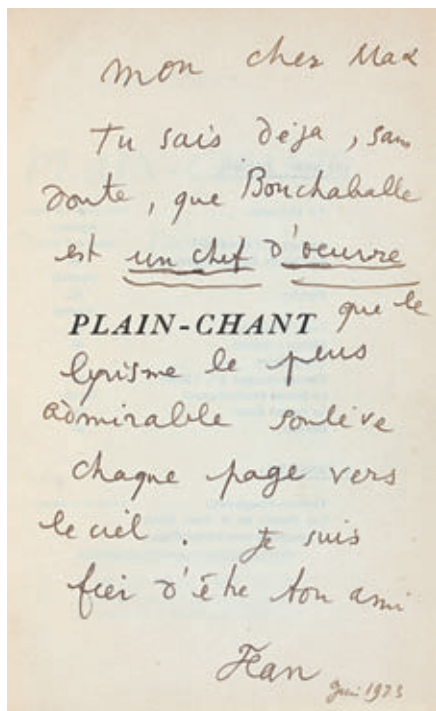 mon cher Max
Tu sais déja, sans
doute, que Bouchaballe
est un chef d'oeuvre
PLAIN-CHANT que le
lyrisme le plus
admirable soulève
chaque page vers
le ciel. Je suis
fier d'être ton ami
Jean
Juin 1923